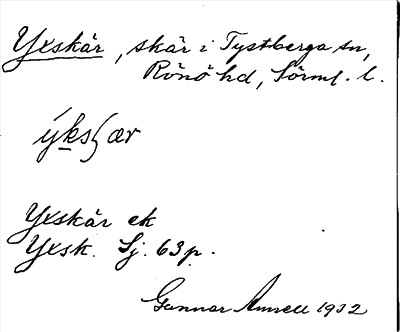 Yxskär, skär i Tystberga sn,
Rönö hd, Sörml. l.
ýksʃær
Yxskär ek
Yxsk. Sj. 63 p.
Gunnar 1932